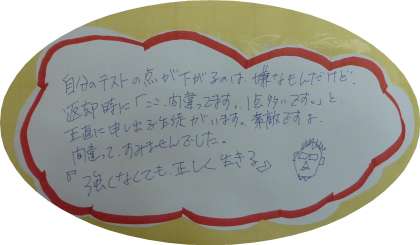 自分のテストの点が下がるのは嫌なもんだけど、
返却時に「ここ、間違ってます。1点多いです。」と
正直に申し出る生徒がいます。素敵ですよ。
間違って、すみませんでした。
『強くなくても、正しく生きる』